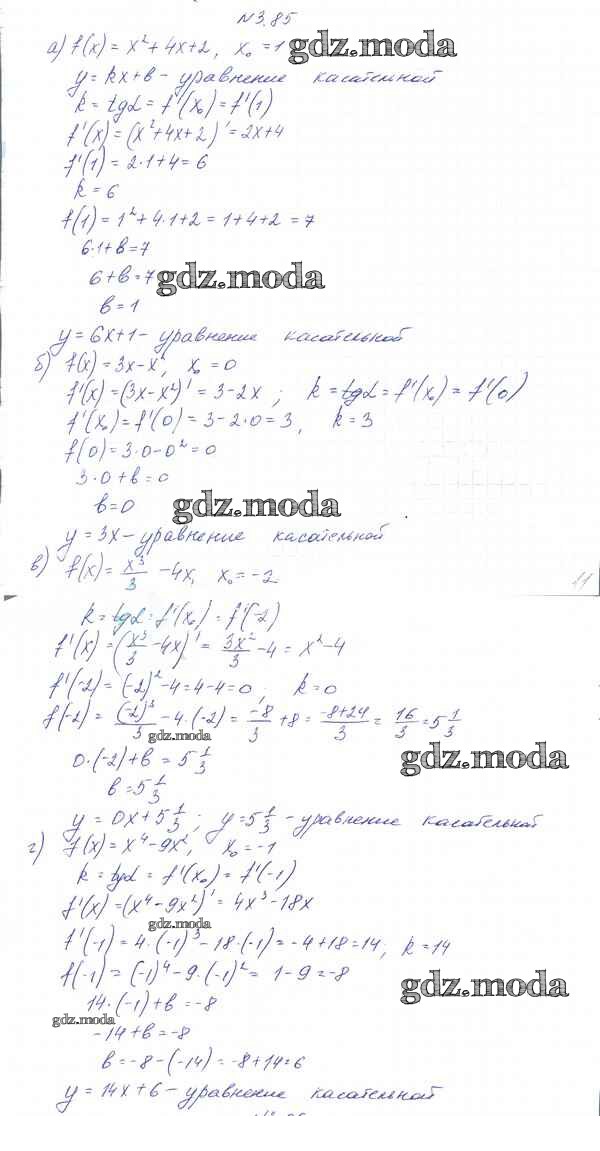 №3.85
а) f(x) = x²+4x+2, x₀ = 1 gdz.moda
y = kx+b - уравнение касательной
k = tgα = f'(x₀) = f'(1)
f'(x) = (x²+4x+2)' = 2x+4
f'(1) = 2·1+4 = 6
k = 6
f(1) = 1²+4·1+2 = 1+4+2 = 7
6·1+b = 7
6+b = 7 gdz.moda
b = 1
y = 6x+1 - уравнение касательной
б) f(x) = 3x-x², x₀ = 0
f'(x) = (3x-x²)' = 3-2x ; k = tgα = f'(x₀) = f'(0)
f'(x₀) = f'(0) = 3-2·0 = 3, k = 3
f(0) = 3·0-0² = 0
3·0+b = 0
b = 0 gdz.moda
y = 3x - уравнение касательной
в) f(x) = x³/3 - 4x, x₀ = -2
11
k = tgα = f'(x₀) = f'(-2)
f'(x) = (x³/3 - 4x)' = 3x²/3 - 4 = x²-4
f'(-2) = (-2)²-4 = 4-4 = 0 ; k = 0
f(-2) = (-2)³/3 - 4·(-2) = -8/3 + 8 = -8+24/3 = 16/3 = 5 1/3
gdz.moda
0·(-2)+b = 5 1/3 gdz.moda
b = 5 1/3
y = 0x+5 1/3 ; y = 5 1/3 - уравнение касательной
г) f(x) = x⁴-9x², x₀ = -1
k = tgα = f'(x₀) = f'(-1)
f'(x) = (x⁴-9x²)' = 4x³-18x
gdz.moda
f'(-1) = 4·(-1)³-18·(-1) = -4+18 = 14; k = 14
f(-1) = (-1)⁴-9·(-1)² = 1-9 = -8
gdz.moda
14·(-1)+b = -8
gdz.moda
-14+b = -8
b = -8-(-14) = -8+14 = 6
y = 14x+6 - уравнение касательной